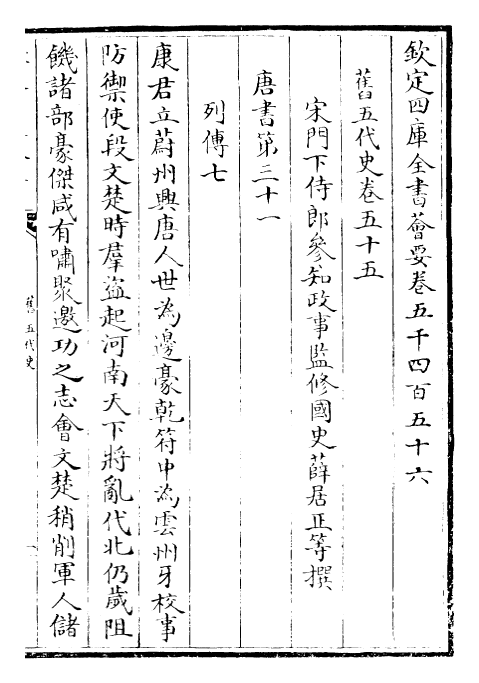 欽定四庫全書薈要卷五千四百五十六
舊五代史卷五十五
宋門下侍郎參知政事監修國史薛居正等撰
唐書第三十一
列傳七
康君立蔚州興唐人世為邊豪乾符中為雲州牙校事
防禦使段文楚時羣盜起河南天下將亂代北仍歲阻
饑諸部豪傑咸有嘯聚邀功之志會文楚稍削軍人儲
舊五代史
一